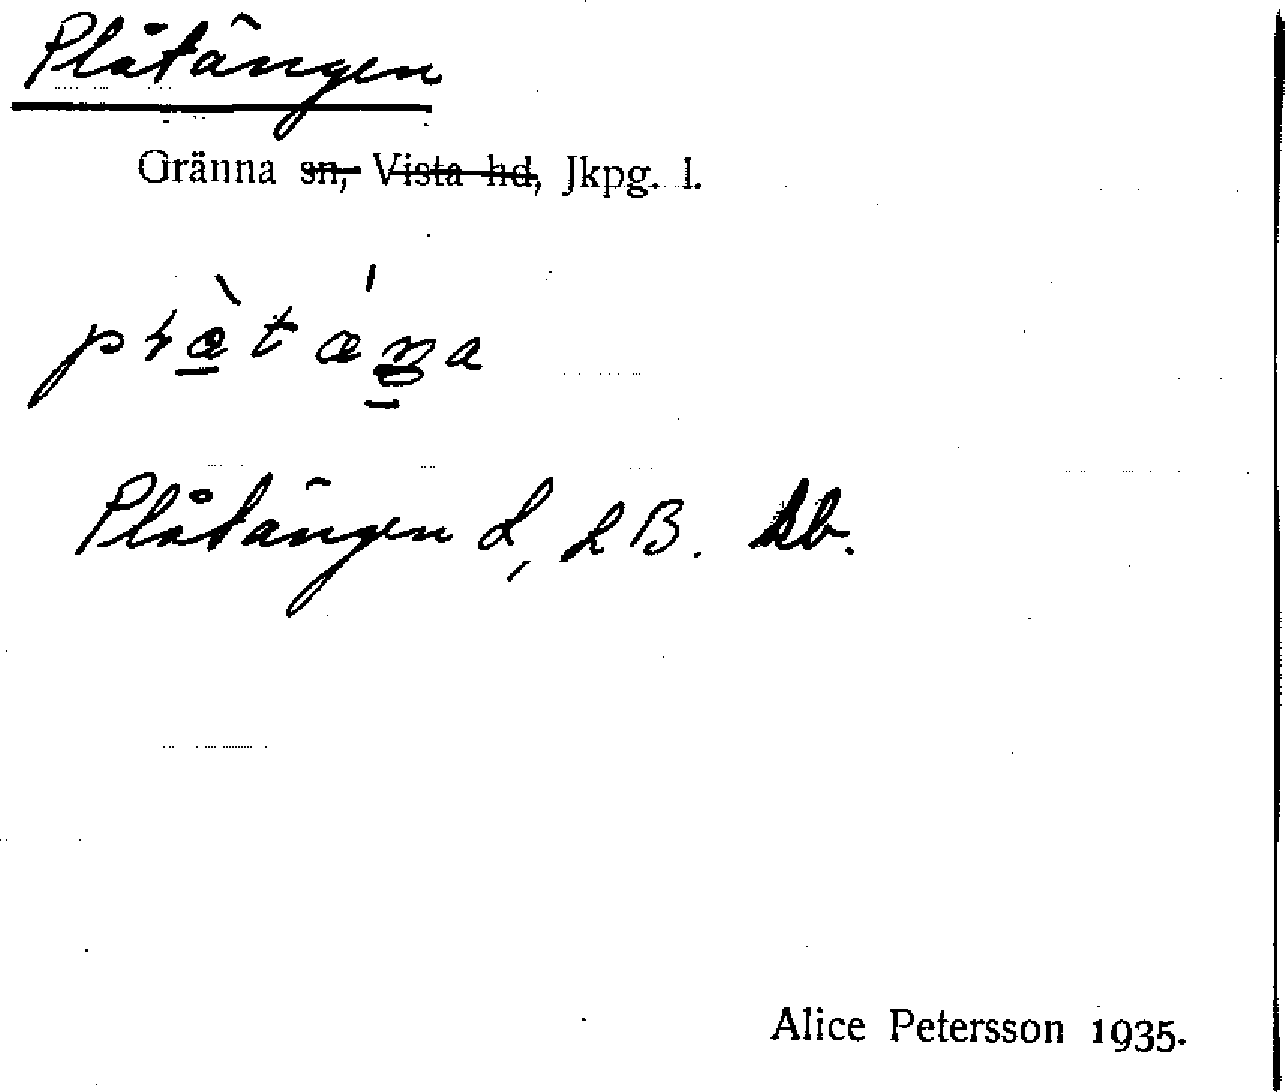 Plåtängen
Gränna sn, Vista hd, Jkpg. l.
Plåtängen L, LB. kb.
Alice Petersson 1935.